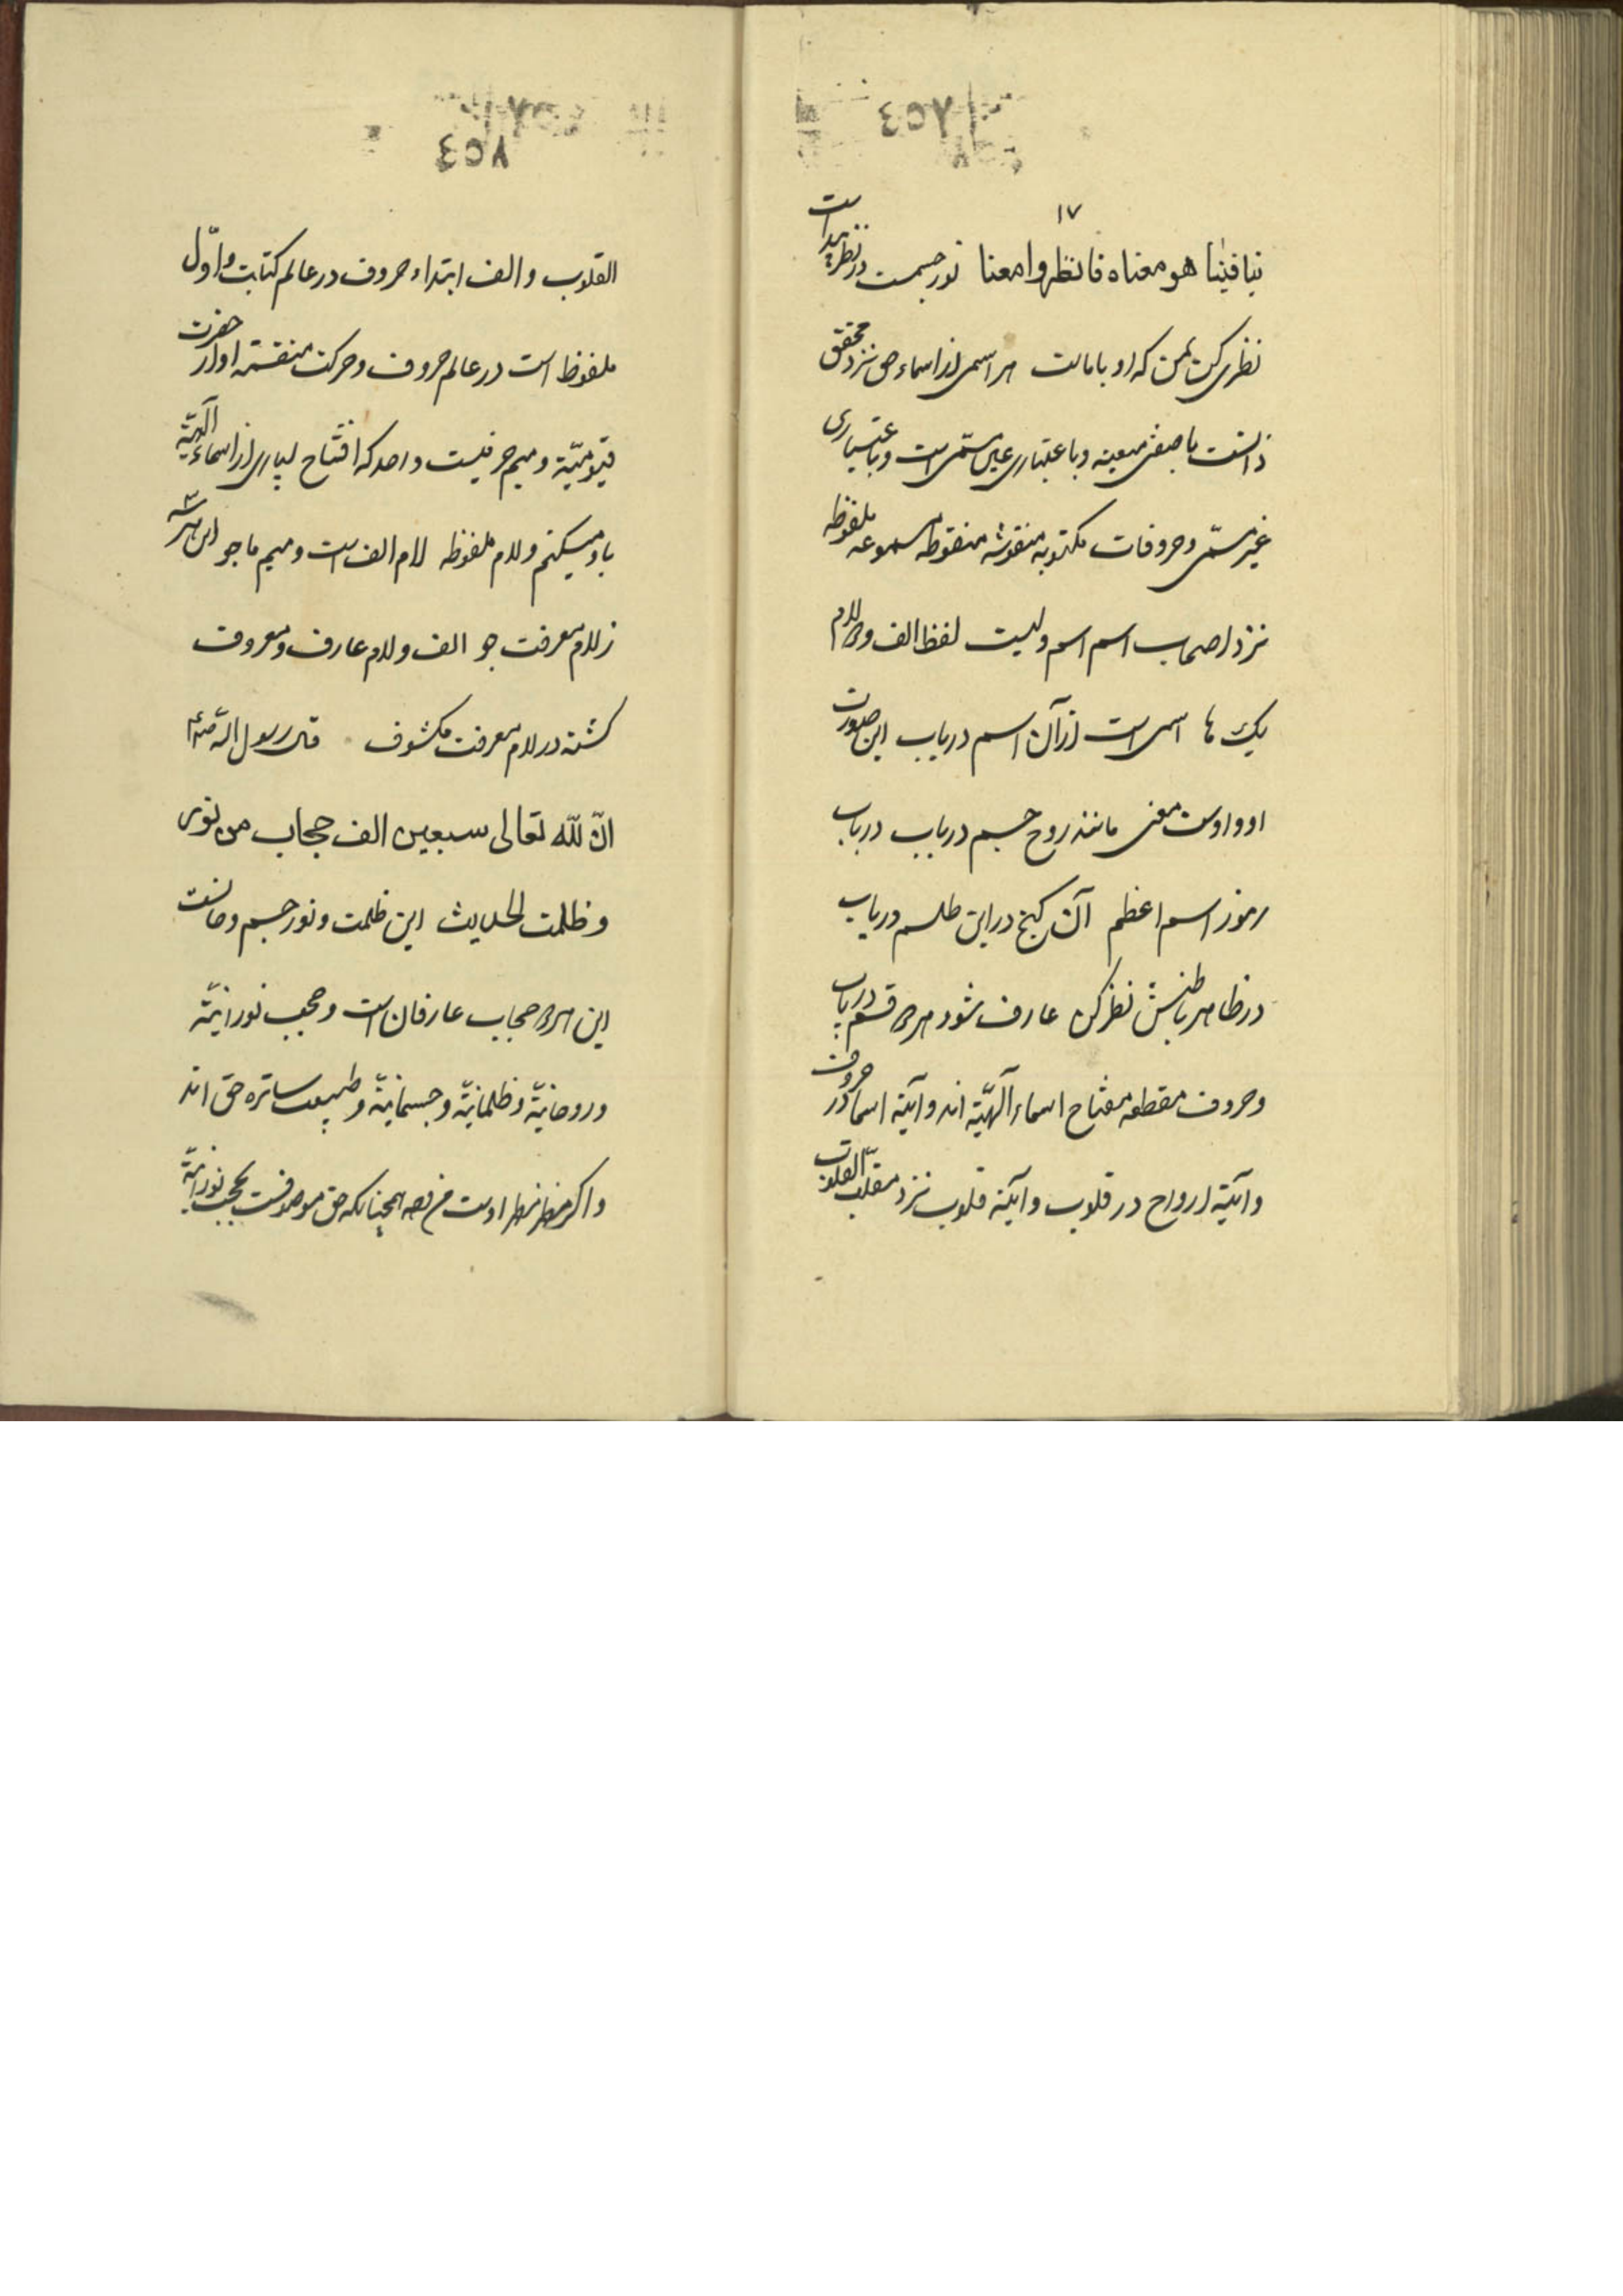 ١٧
فينا هو معناه فانظروا معنا نور چشمست در نظر پیداست
نظری کن بمن که او با ماست هر اسمی از اسماء حق نزد محقق
ذاتست با صفتی معینه و باعتباری عین مسمّی است و باعتباری
غیر مسمّی و حروفات مکتوبه منقوشه منقوطه مسموعه ملفوظه
نزد اصحاب اسم اسم و لیست لفظ الف و دو لام
یک ها اسمی است از آن اسم دریاب این صورت
او و اوست معنی مانند روح جسم دریاب دریاب
رموز اسم اعظم آن گنج در این طلسم دریاب
در ظاهر باطنش نظر کن عارف شو و هر دو قسم دریاب
وحروف مقطعه مفتاح اسماء آلهیّه اند و آینه اسما در حروف
و آینه ارواح در قلوب و آینه قلوب نزد مقلب القلوب
القلوب و الف ابتداء حروف در عالم کتابت و اوّل
ملفوظ است در عالم حروف و حرکت منقسمه او از حضرت
قیّومیّه و میم حرفیست واحد که افتتاح بسیاری از اسماء آلهیّه
باو میکنم و لام ملفوظه لام الف است و میم ما جو این هر سه
ز لام معرفت جو الف و لام عارف و معروف
کشته در لام معرفت مکشوف قال رسول اللّه صلعم
انّ للّه تعالى سبعین الف حجاب من نور
و ظلمت الحدیث این ظلمت و نور جسم و جانست
این هر دو حجاب عارفان است و حجب نورانیّه
و روحانیّه و ظلمانیّه و جسمانیّه و طبیعت ساتره حق اند
و اکر مظهر او است من وجه همچنانکه حق موصوفست بحجب نورانیّه
٧٥٤
٧٥٤